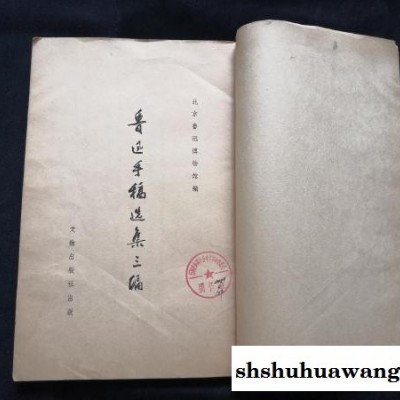 北京鲁迅博物馆编
鲁迅手稿选集三编
文物出版社出版
shshuhuawang